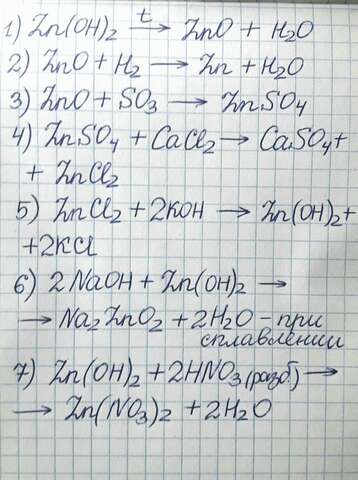 1) Zn(OH)₂ —t→ ZnO + H₂O
2) ZnO + H₂ → Zn + H₂O
3) ZnO + SO₃ → ZnSO₄
4) ZnSO₄ + CaCl₂ → CaSO₄ +
+ ZnCl₂
5) ZnCl₂ + 2KOH → Zn(OH)₂ +
+2KCl
6) 2NaOH + Zn(OH)₂ →
→ Na₂ZnO₂ + 2H₂O – при
сплавлении
7) Zn(OH)₂ + 2HNO₃ (разб) →
→ Zn(NO₃)₂ + 2H₂O